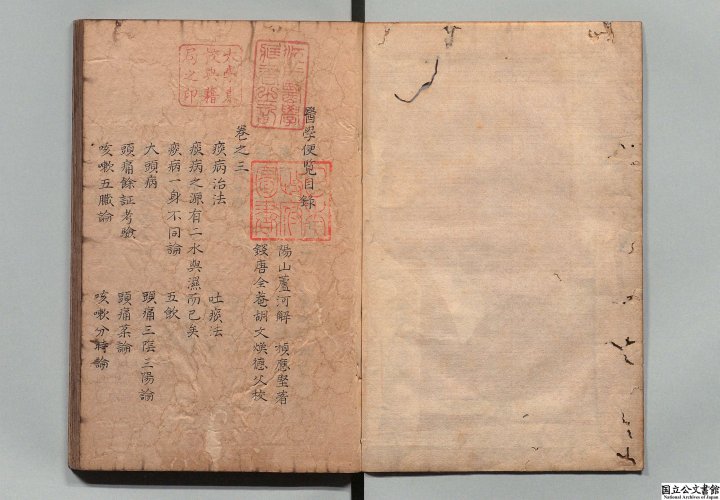 醫學便覽目錄
陽山蘆河解 楨應堅著
錢唐全菴胡文煥德父校
卷之三
痰病治法 吐痰法
痰病之源有二水與濕而已矣
痰病一身不同論 五飲
大頭病 頭痛三陰三陽論
頭痛餘証考驗 頭痛藥論
咳嗽五臟論 咳嗽分時論
大學東
校典籍
局之印
国立公文書館
National Archives of Japan